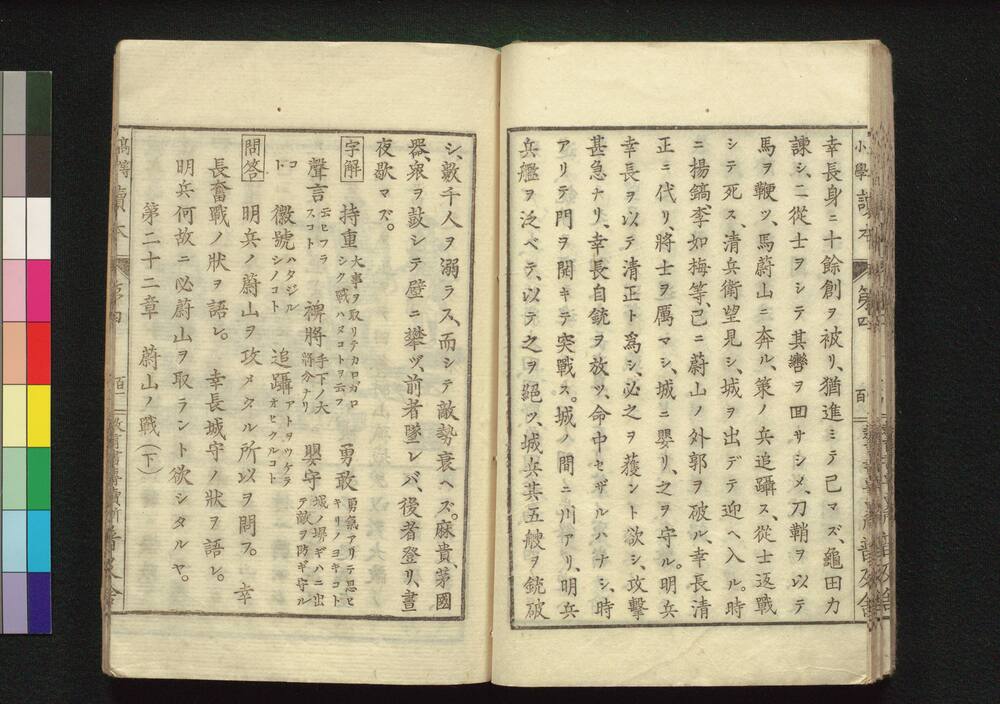 幸長身ニ十餘創ヲ被リ、猶進ミテ已マズ、龜田力
諫シ、二從士ヲシテ其轡ヲ回サシメ、刀鞘ヲ以テ
馬ヲ鞭ツ、馬蔚山ニ奔ル、策ノ兵追躡ス、從士返戰
シテ死ス、清兵衛望見シ、城ヲ出デテ迎ヘ入ル。時
ニ揚鎬、李如梅等、已ニ蔚山ノ外郭ヲ破ル、幸長清
正ニ代リ、將士ヲ厲マシ、城ニ嬰リ、之ヲ守ル。明兵
幸長ヲ以テ清正ト爲シ、必之ヲ獲ント欲シ、攻擊
甚急ナリ、幸長自銃ヲ放ツ、命中セザルハナシ、時
アリテ門ヲ開キテ突戰ス。城ノ間ニ川アリ、明兵
兵艦ヲ泛ベテ、以テ之ヲ絕ツ、城兵其五艘ヲ銃破
シ、數千人ヲ溺ラス、而シテ敵勢衰ヘズ。麻貴、茅國
器、衆ヲ鼓シテ壁ニ攀ヅ、前者墜レバ、後者登リ、晝
夜歇マズ。
字解 持重 大事ヲ取リテカロガロシク戰ハヌコトヲ云フ 勇敢 勇氣アリテ思ヒキリノヨキコト
聲言 云ヒフラスコト 裨將 手下ノ大將分ナリ 嬰守 城ノ塀ギハニ出テ敵ヲ防ギ守ル
コト 徽號 ハタジルシノコト 追躡 アトヲツケテオヒウクルコト
問答 明兵ノ蔚山ヲ攻メタル所以ヲ問フ。 幸
長奮戰ノ狀ヲ語レ。 幸長城守ノ狀ヲ語レ。
明兵何故ニ必蔚山ヲ取ラント欲シタルヤ。
第二十二章 蔚山ノ戰(下)
小學讀本 第四 百
高等讀本 第四 百一 普及舍